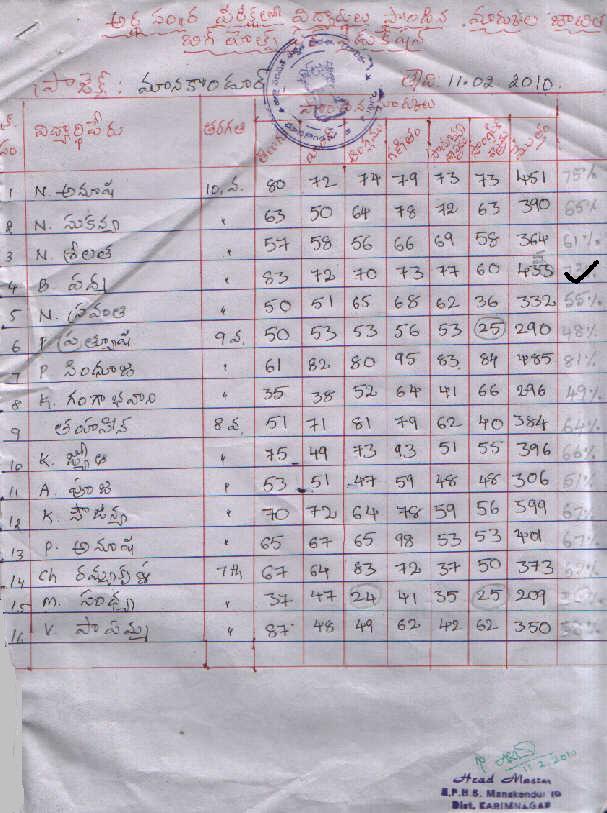 అర్ధ సంవత్సర పరీక్షలో విద్యార్థులు సాధించిన మార్కుల జాబితా
ప్రాజెక్ట్ : మానకొండూర్ తేది: 11.02.2010.
విద్యార్థి పేరు తరగతి
1 N. అనూష 10.వ. 80 72 74 79 73 73 451 75%
2 N. సుకన్య " 63 50 64 78 72 63 390 65%
3 N. శ్రీలత " 57 58 56 66 69 58 364 61%
4 B. పద్మ " 83 72 70 73 77 60 435
5 N. స్రవంతి " 50 51 65 68 62 36 332 55%
6 ప్రత్యూష 9వ. 50 53 53 56 53 25 290 48%
7 P. సింధూజ " 61 82 80 95 83 84 485 81%
8 K. గంగాభవాని " 35 38 52 64 41 66 296 49%
9 తహసీన 8వ. 51 71 81 79 62 40 384 64%
10 K. జ్యోతి " 75 49 73 93 51 55 396 66%
11 A. పూజ " 53 51 47 59 48 48 306 51%
12 K. సౌజన్య " 70 72 64 78 59 56 399 67%
13 P. అనూష " 65 67 65 98 53 53 401 67%
14 Ch రమ్యశ్రీ 7th 67 64 83 72 37 50 373 62%
15 M. సంధ్య " 37 47 24 41 35 25 209
16 V. " 87 48 49 62 42 62 350
11.2.2010
Head Master
Z.P.H.S. Manakondur
Dist. KARIMNAGAR